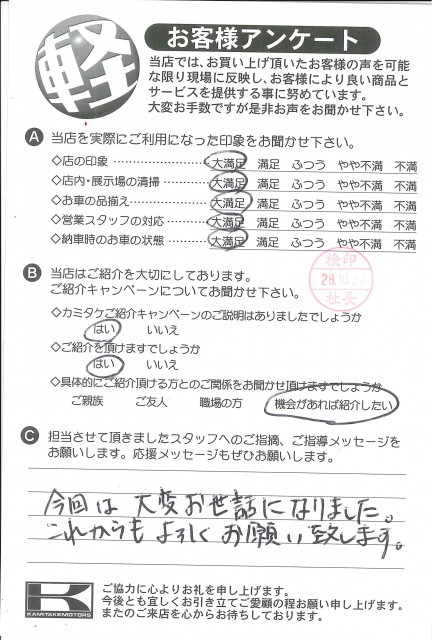 軽
お客様アンケート
当店では、お買い上げ頂いたお客様の声を可能
な限り現場に反映し、お客様により良い商品と
サービスを提供する事に努めています。
大変お手数ですが是非お声をお聞かせ下さい。
A 当店を実際にご利用になった印象をお聞かせ下さい。
◇店の印象 大満足 満足 ふつう やや不満 不満
◇店内・展示場の清掃 大満足 満足 ふつう やや不満 不満
◇お車の品揃え 大満足 満足 ふつう やや不満 不満
◇営業スタッフの対応 大満足 満足 ふつう やや不満 不満
◇納車時のお車の状態 大満足 満足 ふつう やや不満 不満
検印
28.10.
社長
B 当店はご紹介を大切にしております。
ご紹介キャンペーンについてお聞かせ下さい。
◇カミタケご紹介キャンペーンのご説明はありましたでしょうか
はい いいえ
◇ご紹介を頂けますでしょうか
はい いいえ
◇具体的にご紹介頂ける方とのご関係をお聞かせ頂けますでしょうか
ご親族 ご友人 職場の方 機会があれば紹介したい
C 担当させて頂きましたスタッフへのご指摘、ご指導メッセージを
お願いします。応援メッセージもぜひお願いします。
今回は大変お世話になりました。
これからもよろしくお願い致します。
K
KAMITAKEMOTORS
ご協力に心よりお礼を申し上げます。
今後とも宜しくお引き立てご愛顧の程お願い申し上げます。
またのご来店を心からお待ちしております。